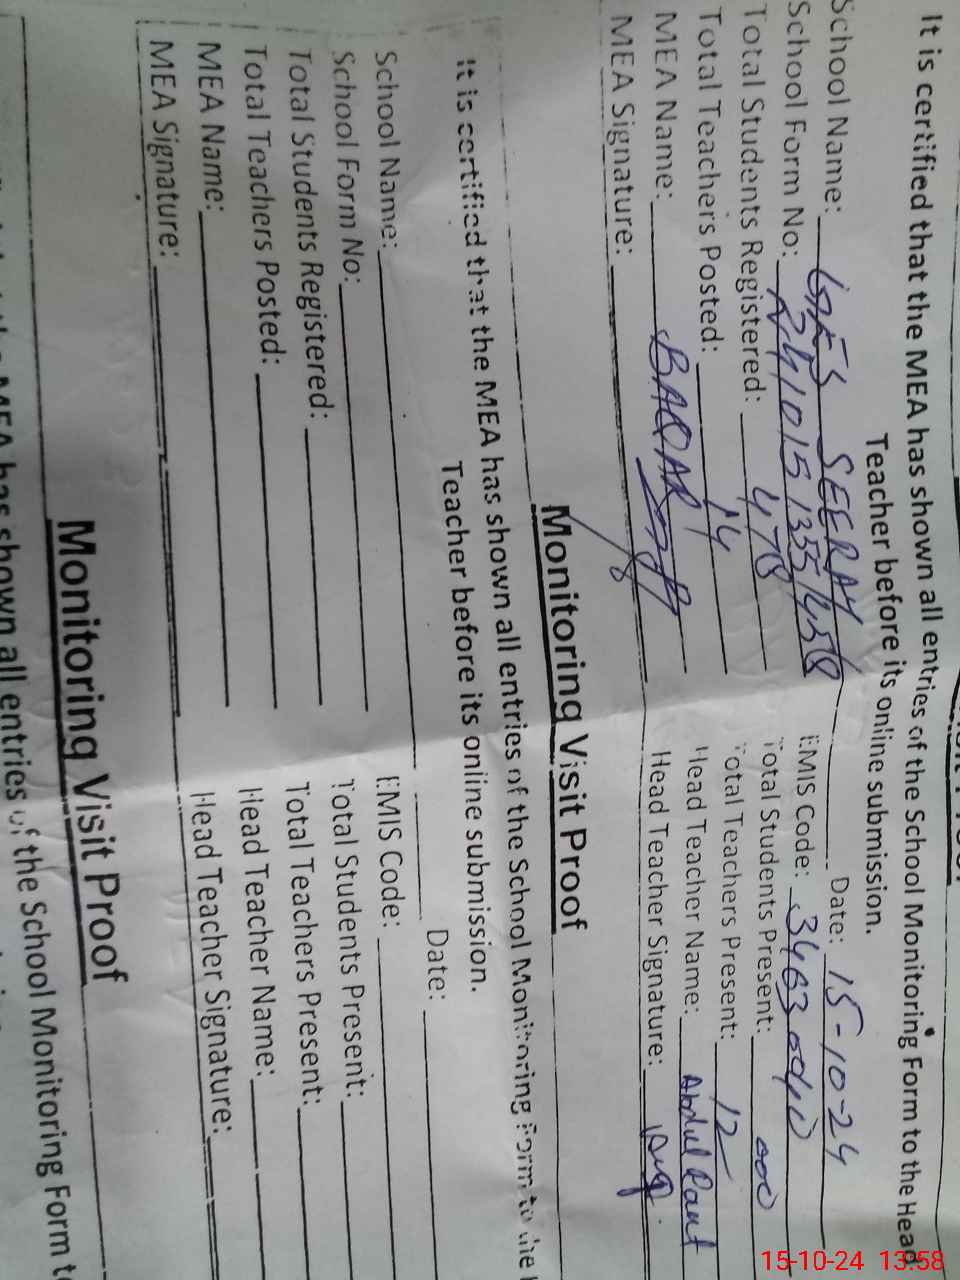 It is certified that the MEA has shown all entries of the School Monitoring Form to the Head
Teacher before its online submission.
School Name: SEERAY Date: 15-10-24
School Form No: 241015 1355 1458 EMIS Code: 34630040
Total Students Registered: 478 Total Students Present: 000
Total Teachers Posted: 14 Total Teachers Present: 12
MEA Name: BAQAR Head Teacher Name: Abdul Rauf
MEA Signature: Head Teacher Signature:
Monitoring Visit Proof
It is certified that the MEA has shown all entries of the School Monitoring Form to the
Teacher before its online submission.
School Name: Date:
School Form No: EMIS Code:
Total Students Registered: Total Students Present:
Total Teachers Posted: Total Teachers Present:
MEA Name: Head Teacher Name:
MEA Signature: Head Teacher Signature:
Monitoring Visit Proof
MEA has shown all entries of the School Monitoring Form
15-10-24 13:58